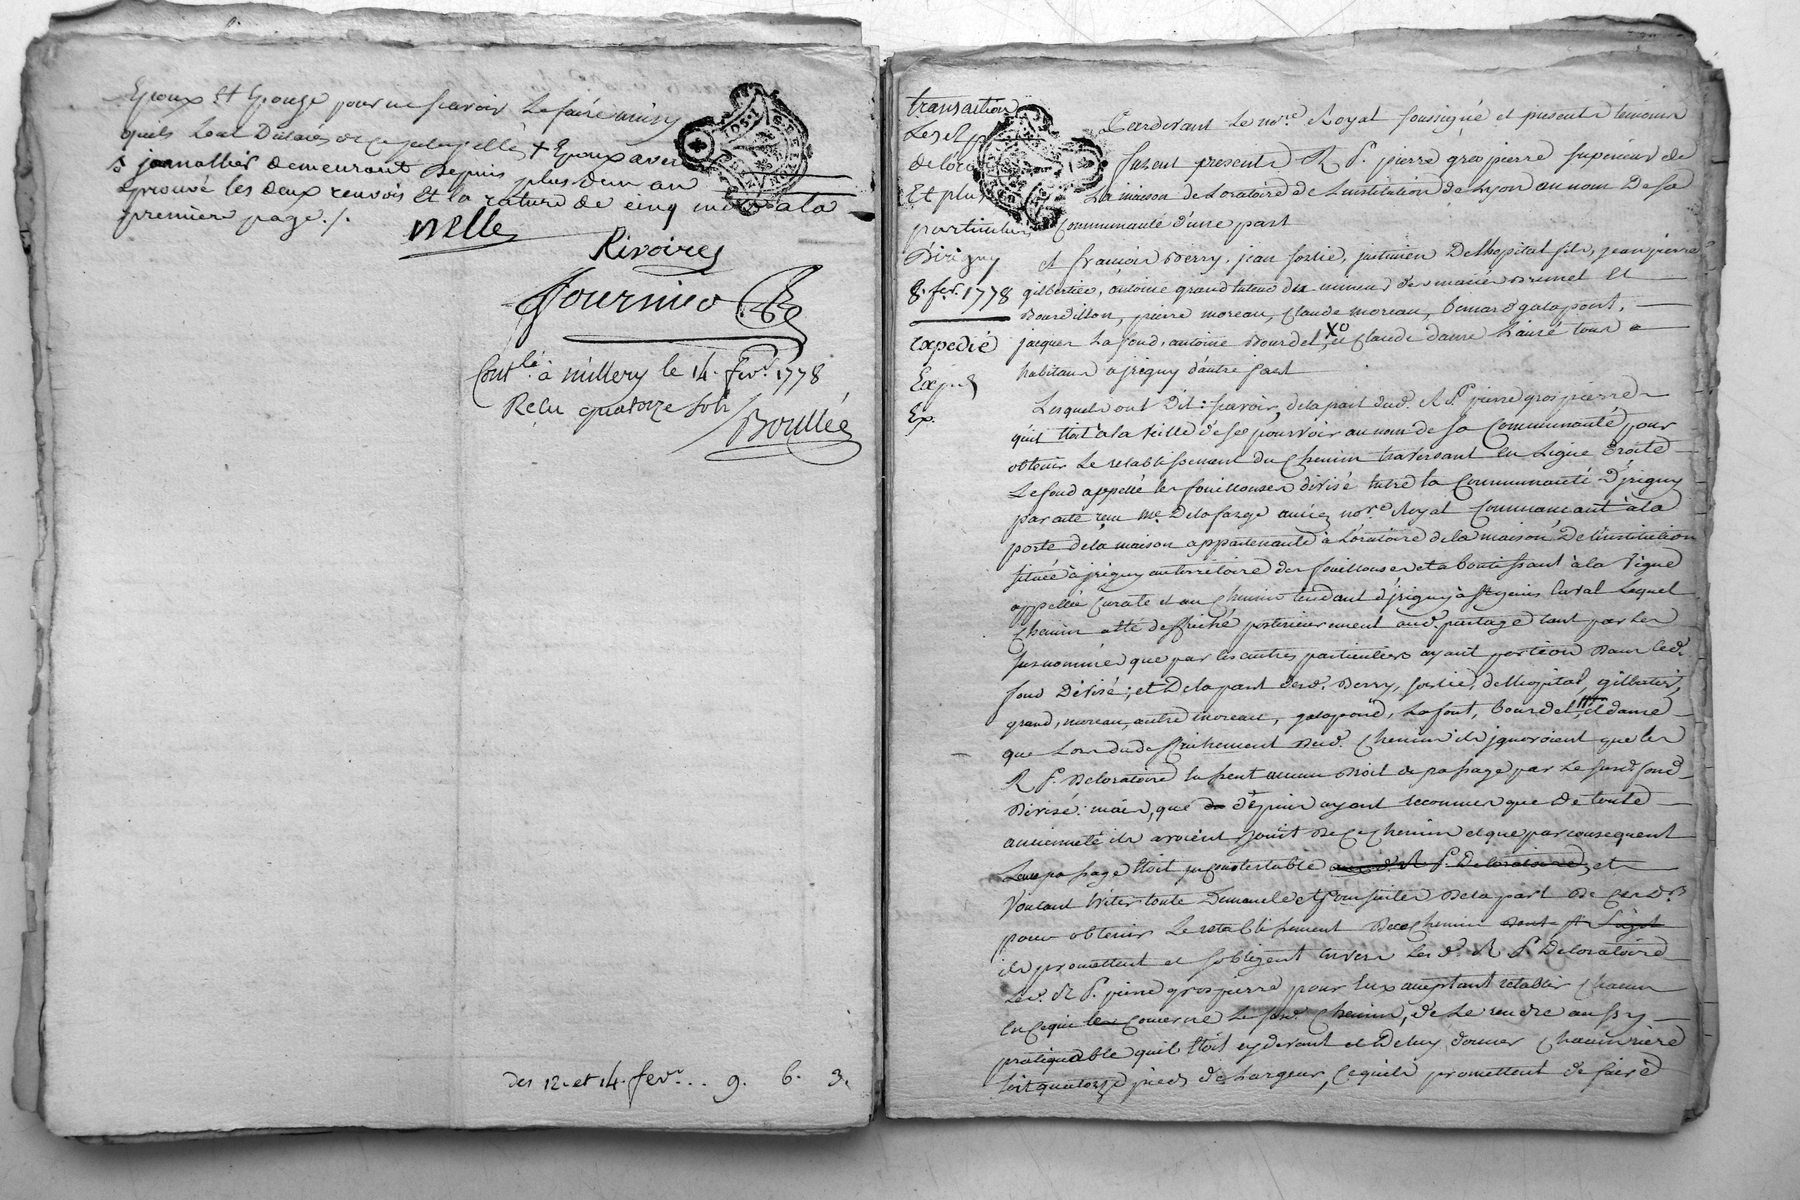 Epoux Et Epouse pour ne scavoir Le faire ainsy
quils Lont Déclaré de ce interpellé + Epoux avec
s journallier demeurant Depuis plus d'un an
aprouvé les deux renvois Et la rature de cinq mots a la
premiere page ./.
nelle
Rivoires
fournier
Contlé. à millery le 14. fevr. 1778
Reçu quatorze sols
Boullée
des 12. et 14. fevr. .. 9. 6. 3.
transaction
Et plus
particuliers
Dirigny
8. fevr. 1778
expedié
Ex.
Pardevant Le nore. Royal soussigné et presents temoins
furent presents R. P. pierre gros pierre superieur de
La maison de Loratoire de Linstitution de Lyon au nom De sa
Communauté d'une part
et francois Berry, jean fortié, justinien Delhopital fils, jean pierre
gilbertier, antoine grand tuteur des mineurs de marie Brunet Et
Bourdillon, pierre moreau, Claude moreau, Benard galopont,
jacques Lafond, antoine Bourdel, Xo et Claude dame Lainé tous
habitans a jrigny d'autre part
Lesquels ont Dit: scavoir, de la part dud. R. P. pierre gros pierre
quil Etoit a la veille de se pourvoir au nom de sa Communauté pour
obtenir Le retablissement du Chemin traversant en Ligne Droite
Le fond appellé les fouillouses divisé entre la Communauté d'jrigny
par acte reçu me. Delafarge ancien nore. Royal Commançant à la
porte de la maison appartenante à Loratoire de la maison De linstitution
située à jrigny au territoire des fouillouses et aboutissant à la Vigne
appellée Curate et au Chemin tendant d'jrigny à st genis Laval Lequel
Chemin a Eté deffriché posterieurement aud. partage tant par Les
susnommés que par les autres particuliers ayant portion Dans led.
fond Divisé; et De la part desd. Berry, fortié, delhopital, gilbertier,
grand, moreau, autre moreau, galopont, Lafont, Bourdel, et dame
que Lors du deffrichement dud. Chemin ils jgnoroient que les
R. P. De loratoire Eussent aucun Droit de passage par Le susd. fond
Divisé: mais, que depuis ayant reconnu que De toute
ancienneté ils avoient jouit De Ce Chemin et que par consequent
Leur passage Etoit jncontestable aux d. R. P. De loratoire, et
Voulant Eviter toute Demande et poursuites De la part De Ces d. Rs
pour obtenir Le retablissement De ce Chemin
ils promettent et sobligent Envers Les d. R. P. De loratoire
Led. R. P. pierre gros pierre pour Eux acceptant retablir Chacun
En ce qui les Concerne Le susd. Chemin, de Le rendre aussy
pratiquable quil Etoit cy devant et De luy donner
quatorze pieds de Largeur, Ce quils promettent de faire